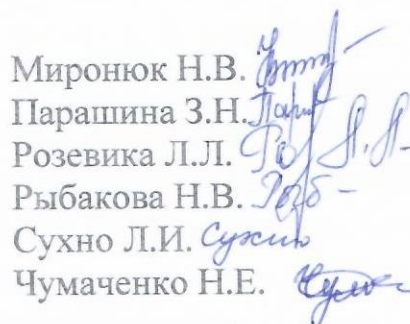 Миронюк Н.В.
Парашина З.Н.
Розевика Л.Л.
Рыбакова Н.В.
Сухно Л.И. Сухно
Чумаченко Н.Е.